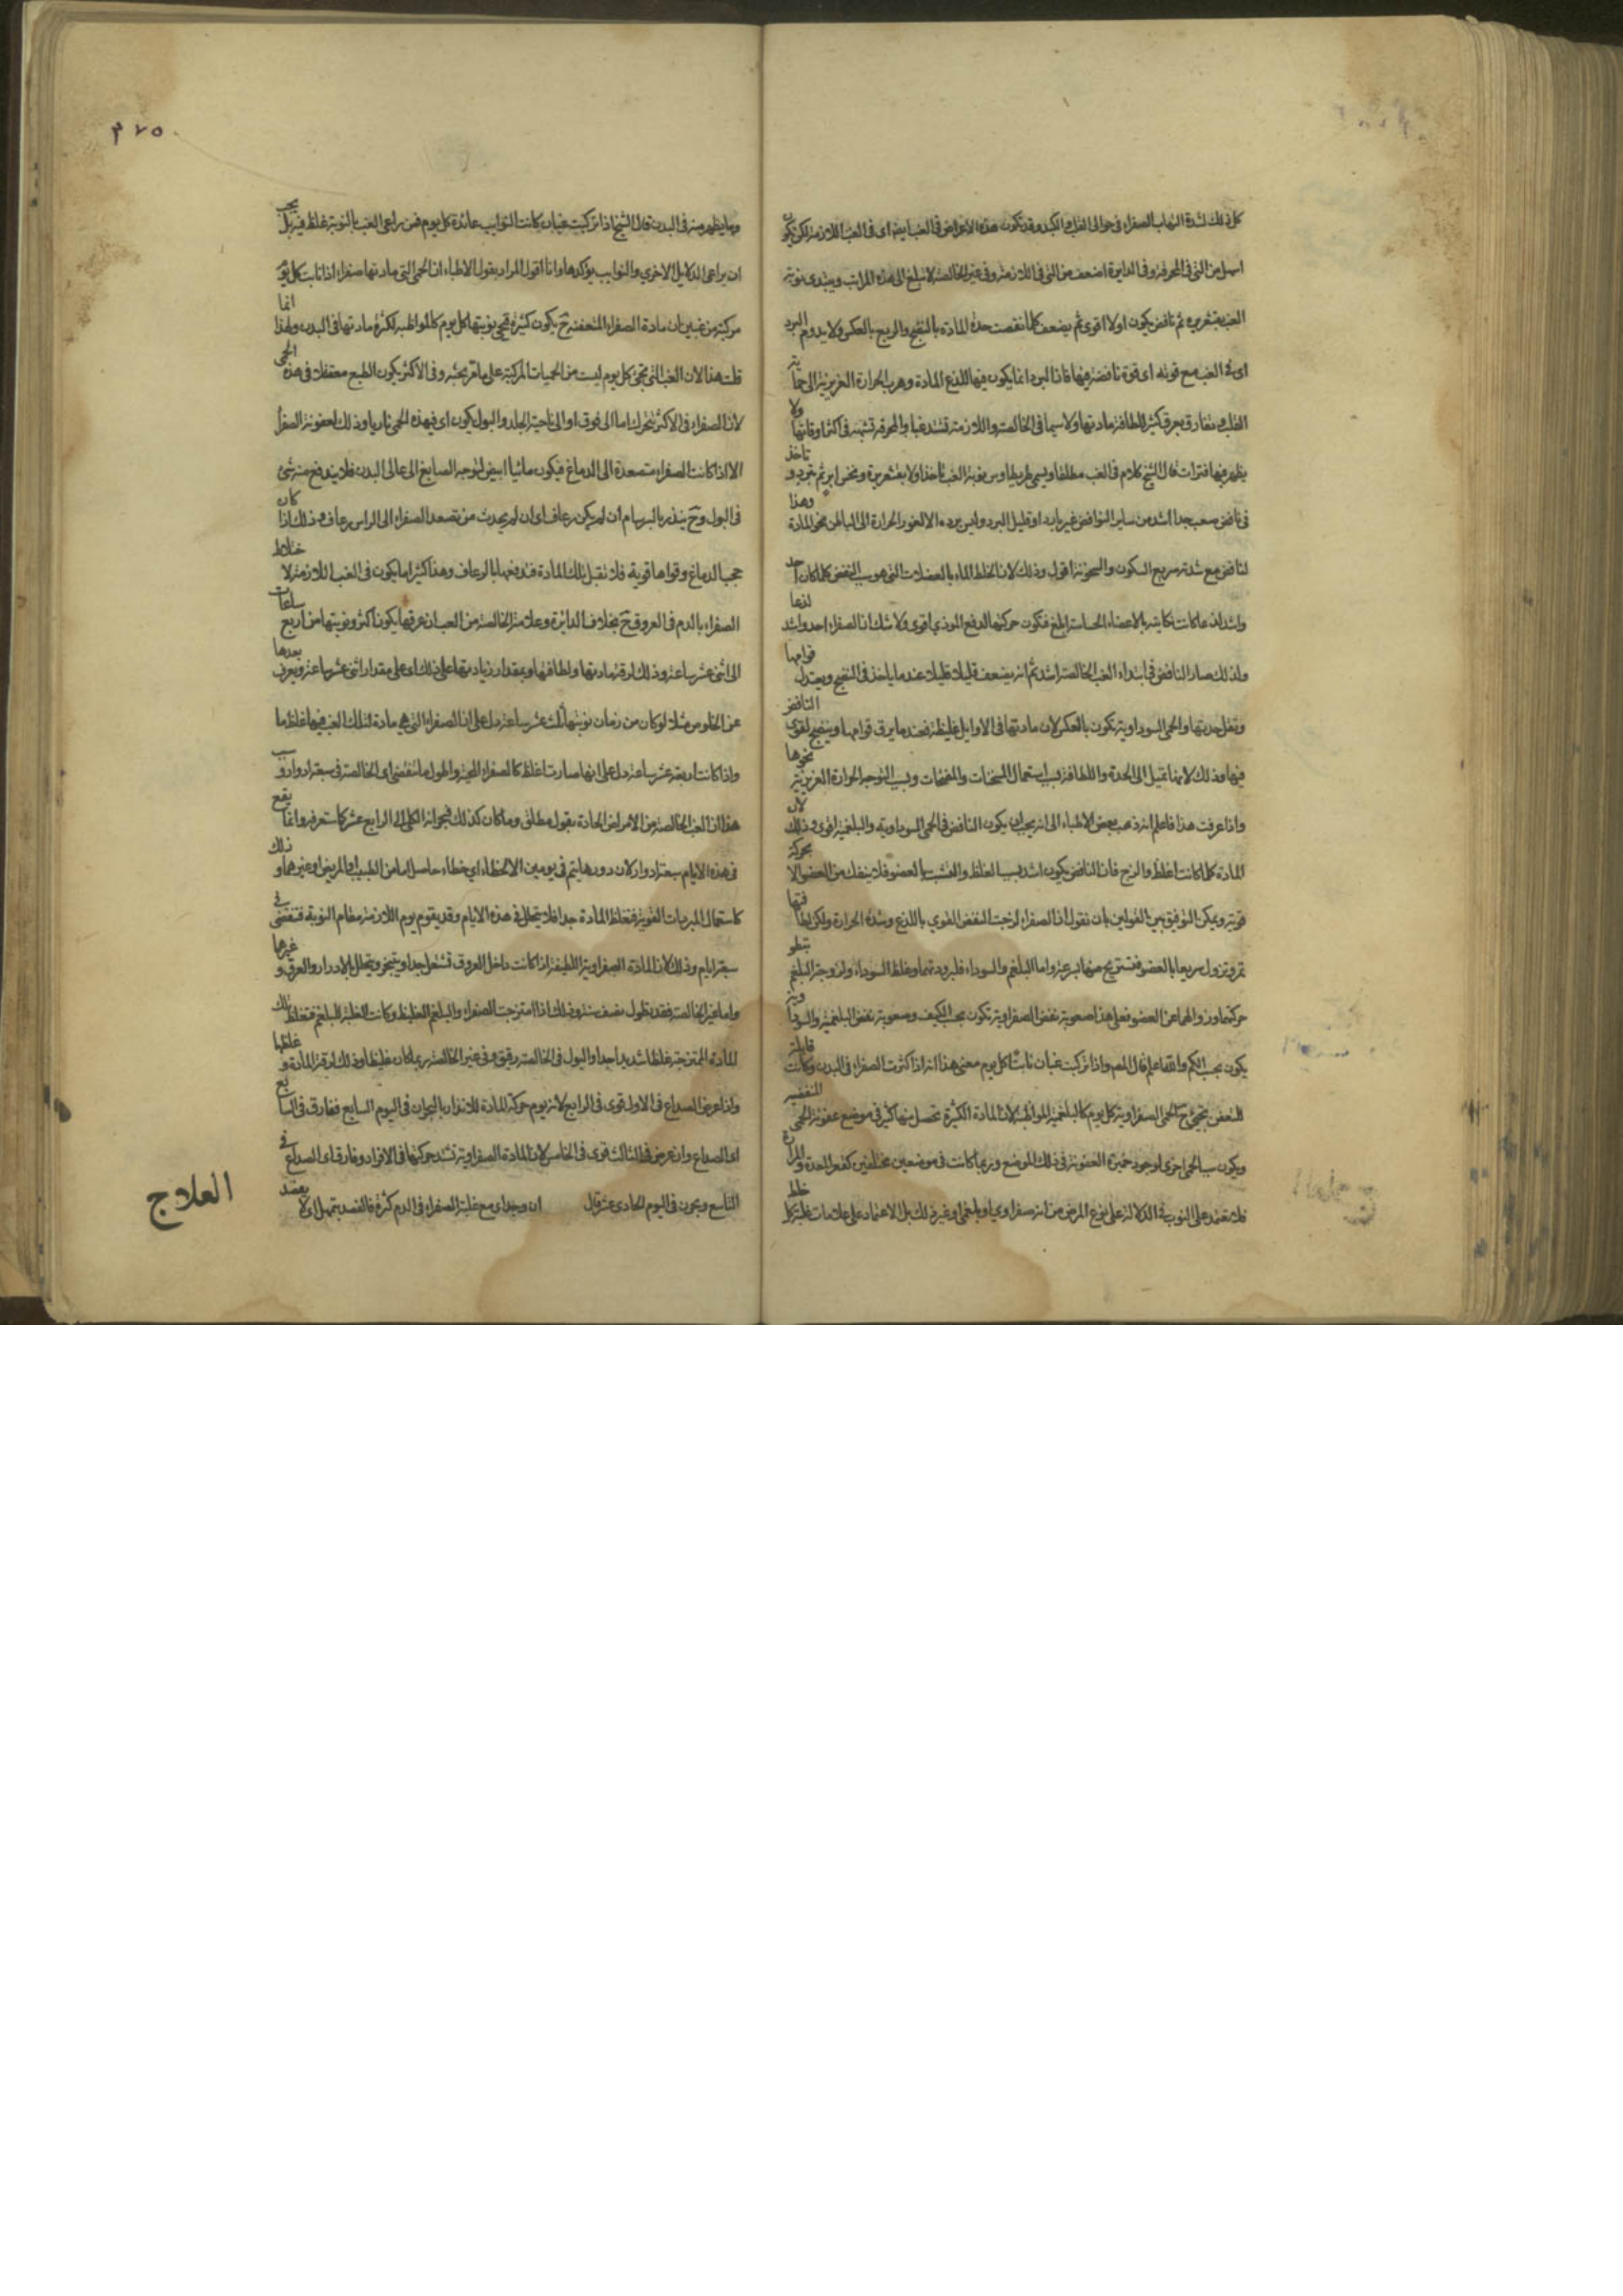 كل ذلك لشدة التهاب الصفراء فى حوالى القلب والكبد وقد تكون هذه الاعراض فى الغب ايضا اى فى الغب اللازمة لكن تكون
اسهل من التى فى المحرقة وفى الدايرة اضعف من التى فى اللازمة وفى غير الخالصة لا تبلغ الى هذه المراتب ويبتدى نوبة
الغب بقشعريرة ثم نافض يكون اولا اقوى ثم يضعف كلما نقصت حدة المادة بالنضج والربع بالعكس ولا يدوم البرد
اى فى الغب مع قوته اى قوة نافضه فيها فان البرد انما يكون فيها للذع المادة وهرب الحرارة الغريزية الى حماية
القلب وتفارق بعرق كثير للطافة مادتها ولا سيما فى الخالصة واللازمة تشتد غبا والمحرقة تشبه فى اكثر اوقاتها ولا
يظهر فيها فترات قال الشيخ كلام فى الغب مطلقا ويسمى طريطاوس نوبة الغب تاخذ اولا بقشعريرة ونخس ابر ثم تبرد وتاخذ
فى نافض صعب جدا اشد من ساير النوافض غير بارد او قليل البرد وليس برده الا لغور الحرارة الى الباطن نحو المادة وهذا
النافض مع شدته سريع السكون والسخونة اقول وذلك لان الخلط المار بالعضلات التى هو سبب النفض كلما كان احد
واشد لذعا كانت نكايته بالاعضاء الحساسة ابلغ فتكون حركتها لدفع الموذي اقوى ولا شك ان الصفراء احد واشد لذعا
ولذلك صار النافض فى ابتداء الغب الخالصة اشد ثم انه يضعف قليلا قليلا عند ما ياخذ فى النضج ويعتدل قوامها
وتقل حدتها والحمى السوداوية تكون بالعكس لان مادتها فى الاوايل غليظة فعند ما يرق قوامها وينضج تقوى النافض
فيها وذلك لانها تميل الى الحدة واللطافة بسبب استعمال المسخنات والمنضجات وبسبب التوجه الحرارة الغريزية نحوها
واذا عرفت هذا فاعلم انه ذهب بعض الاطباء الى انه يجب ان يكون النافض فى الحمى السوداوية والبلغمية اقوى وذلك لان
المادة كلما كانت اغلظ والزج فان النافض يكون اشد بسبب الغلظ والتشبث بالعضو فلا ينفك من العضو الا بحركة
قوية ويمكن التوفيق بين القولين بان نقول ان الصفراء اوجبت النفض القوي باللذع وشدة الحرارة ولكن لطافتها
تمر وتزول سريعا بالعضو فتستريح منها بسرعة واما البلغم والسوداء فلبرودتهما وغلظ السوداء ولزوجة البلغم يبطو
حركتهما وزوالهما عن العضو فعلى هذا صعوبة نفض الصفراوية تكون بحسب الكيف وصعوبة نفض البلغمية والسوداوية
يكون بحسب الكم والله اعلم قال المص واذا تركبت غبان نابت كل يوم معنى هذا انه اذا كثرت الصفراء فى البدن وكانت قابلة
للتعفن تجيئ ح الحمى الصفراوية كل يوم كالبلغمية المواظبة لان المادة الكثيرة تحصل منها كثير فى موضع عفونة الحمى المنقضية
ويكون سبب الحمى اخرى لوجود خميرة العفونة فى ذلك الموضع وربما كانت فى موضعين مختلفين كقعر المعدة والمرارة
فلا تعتمد على النوب فى الدلالة على نوع المرض من انه صفراوي او بلغمى او غير ذلك بل الاعتماد على علامات غلبة كل خلط
٣٧٥
وما يظهر منه فى البدن قال الشيخ اذا تركبت غبان كانت النوايب عائدة كل يوم فمن يراعى الغب بالنوبة غلط فيه بل يجب
ان يراعى الدلايل الاخري والنوايب يوكدها وانا اقول المراد بقول الاطباء ان الحمى التى مادتها صفراء اذا نابت كل يوم
مركبة من غبين ان مادة الصفراء المتعفنة ح يكون كثيرة فتجئ نوبتها كل يوم كالمواظبة لكثرة مادتها فى البدن ولهذا انما
قلت هذا لان الغب التى تجئ كل يوم ليست من الحميات المركبة على ما تقر بحثه وفى الاكثر يكون الطبع معتقلا فى هذه الحمى
لان الصفراء فى الاكثر تتحرك اما الى فوق او الى ناحية الجلد والبول يكون اى فى هذه الحمى ناريا وذلك لعفونة الصفرا
الا اذا كانت الصفراء متصعدة الى الدماغ فيكون مائيا ابيض لتوجه الصابغ الى عالى البدن فلا يندفع منه شئ
فى البول وح ينذر بالبرسام ان لم يكن رعاف اى ان لم يحدث من تصعد الصفراء الى الراس رعاف وذلك اذا كان
حجب الدماغ وقواها قوية فلا تقبل تلك المادة فتدفعها بالرعاف وهذا اكثر ما يكون فى الغب اللازمة لاختلاط
الصفراء بالدم فى العروق ح بخلاف الدائرة وعلامة الخالصة من الغب ان عرقها يكون اكثر ونوبتها من اربع ساعات
الى اثنى عشر ساعة وذلك لرقة مادتها ولطافتها وبمقدار زيادتها على ذلك اى على مقدار اثنى عشر ساعة يعرف بعدها
عن الخلوص مثلا لو كان من زمان نوبتها ثلث عشر ساعة دل على ان الصفراء التى هى مادة لتلك الغب فيها غلظ ما
واذا كانت اربعة عشر ساعة دل على انها صارت اغلظ كالصفراء المحية واطول ما تنقضى اى الخالصة فى سبعة ادوار وسبب
هذا ان الغب الخالصة من الامراض الحادة بقول مطلق وما كان كذلك فبحرانه الكلى الى الرابع عشر كما ستعرفه وانما يقع
فى هذه الايام سبعة ادوار لان دورها يتم فى يومين الا لخطاء اى خطاء حاصل اما من الطبيب او المريض او غيرهما وذلك
كاستعمال المبردات القوية فتغلظ المادة جدا فلا يتحلل فى هذه الايام وقد يقوم يوم اللازمة مقام النوبة فتنقضى فى
سبعة ايام وذلك لان المادة الصفراوية اللطيفة اذا كانت داخل العروق تشتعل جدا وتتبخر ويتحلل بالادرار والعرق وغيرها
واما غير الخالصة فقد تطول نصف سنة وذلك اذا امتزجت الصفراء والبلغم الغليظ وكانت الغلبة للبلغم فتغلظ تلك
المادة الممتزجة غلظا شديدا جدا والبول فى الخالصة رقيق وفى غير الخالصة ربما كان غليظا وذلك لرقة المادة وغلظها
واذا عرض الصداع فى الاول قوى فى الرابع لانه يوم حركة المادة للانذار بالبحران فى اليوم السابع ففارق فى السابع
اى الصداع وان عرض فى الثالث قوى فى الخامس لان المادة الصفراوية تشتد حركتها فى الافراد وفارق اى الصداع فى
التاسع وبحرن فى اليوم الحادى عشر قال ان وجد اى مع غلبة الصفراء فى الدم كثرة فالفصد بتمهل اى لا يفصد
العلاج